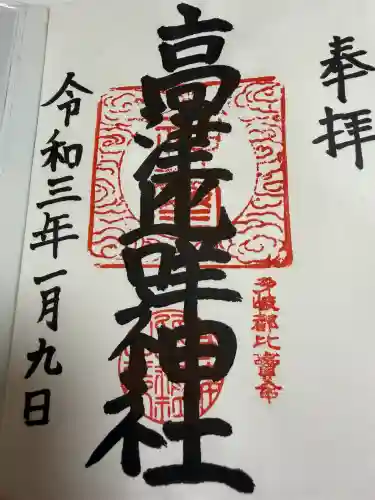 奉拝
高津比咩神社
多岐都比賣命
令和三年一月九日